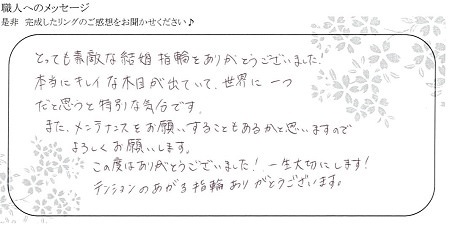 職人へのメッセージ
是非 完成したリングのご感想をお聞かせください♪
とっても素敵な結婚指輪をありがとうございました!
本当にキレイな木目が出ていて、世界に一つ
だと思うと特別な気分です。
また、メンテナンスをお願いすることもあるかと思いますので
よろしくお願いします。
この度はありがとうございました!一生大切にします!
テンションのあがる指輪ありがとうございます。